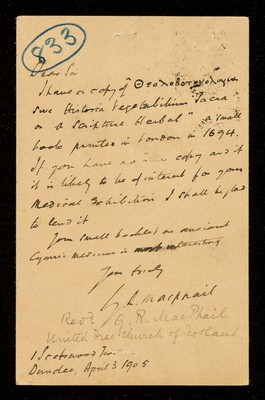 833
Dear Sir
I have a copy of "Θεολοβοτονολογια
sive Historia Vegetabilium Sacra
or a Scripture Herbal" a small
book printed in London in 1694.
If you have no other copy and if
it is likely to be of interest for your
Medical Exhibition I shall be glad
to lend it
Your small booklet on ancient
Cymric medicine is most interesting
Yours truly
G. R. Macphail
Revd. G. R. MacPhail
United Free Church of Scotland
1 Scotswood
Dundee, April 3 1905